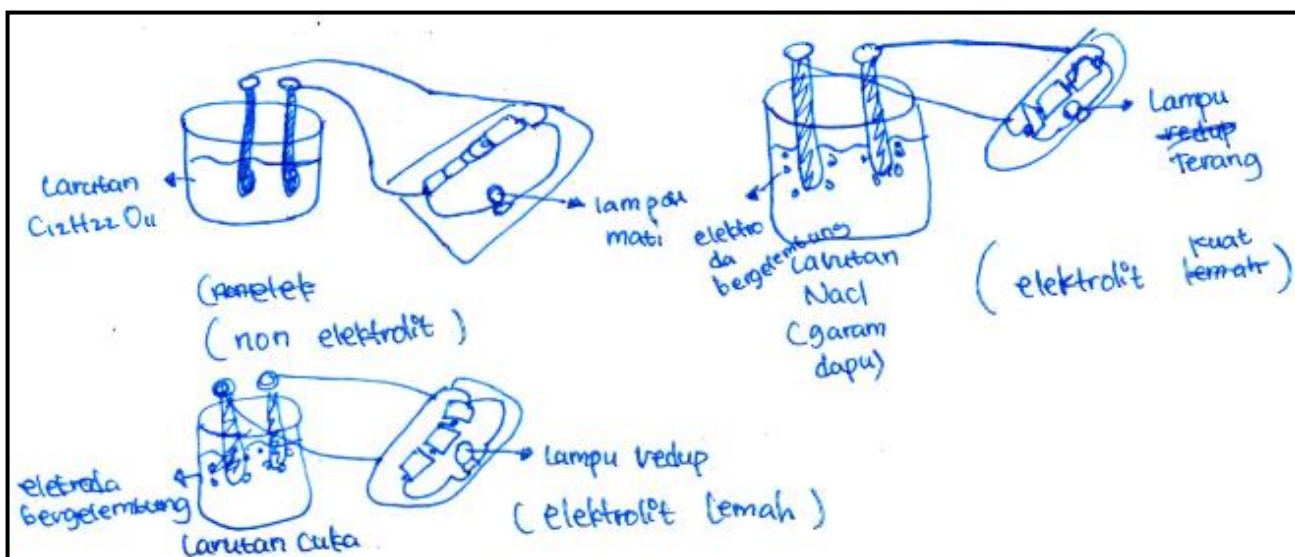 Larutan
C12H22O11
lampu
mati
(nonelek
(non elektrolit)
elektro
da
bergelembung
Larutan
NaCl
(garam
dapu)
Lampu
redup
Terang
(elektrolit lemah kuat)
eletroda
bergelembung
Larutan Cuka
Lampu redup
(elektrolit lemah)